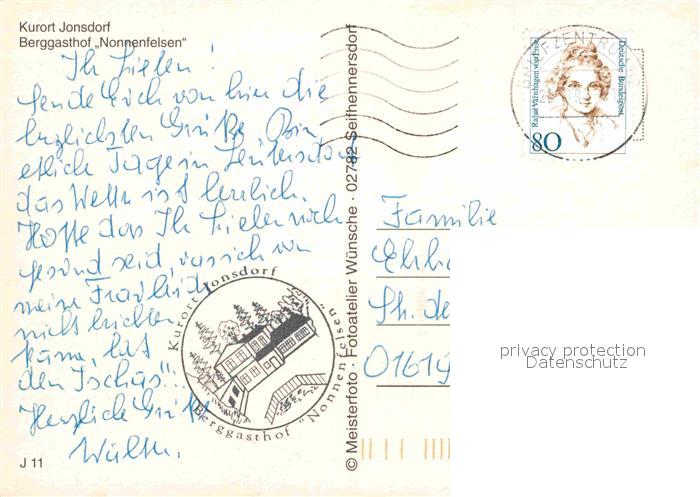 Kurort Jonsdorf
Berggasthof „Nonnenfelsen“
Ihr Lieben!
Sende Euch von hier die
herzlichsten Grüße. Bin
etliche Tage in
das Wetter ist herrlich.
Hoffe das Ihr Lieben noch
gesund seid, was ich von
meine
nicht berichten
kann, hat
den Ischias!!.
Herzliche Grüße
J 11
Kurort Jonsdorf
Berggasthof "Nonnenfelsen"
© Meisterfoto · Fotoatelier Wünsche · 02782 Seifhennersdorf
BRIEFZENTRUM
Rahel Varnhagen von Ense
Deutsche Bundespost
80
Familie
01619
privacy protection
Datenschutz